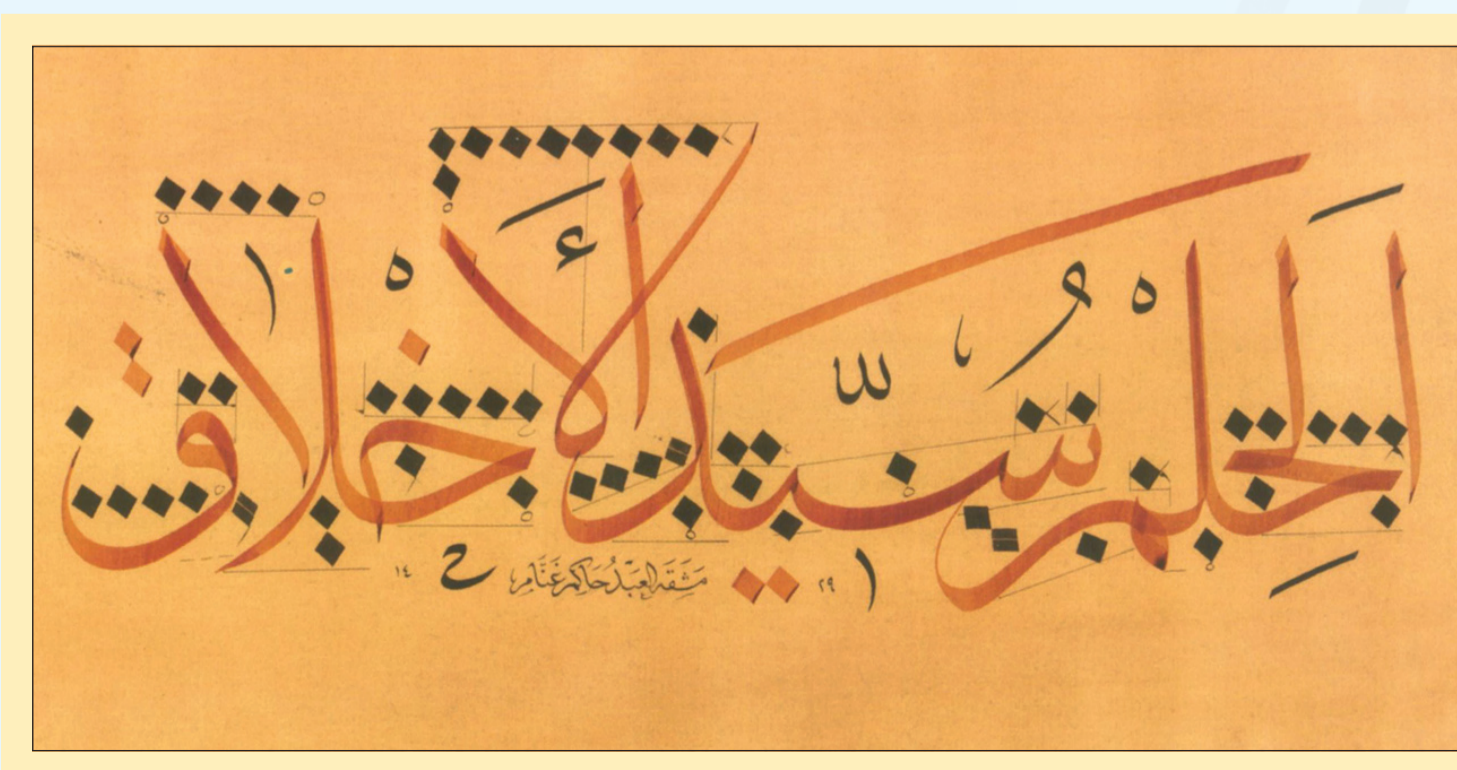 اَلْحِلْمُ سيّد الأَخْلاق
٢٩ مَشَقَه العَبْدُ حَاكم غَنَّام ١٤